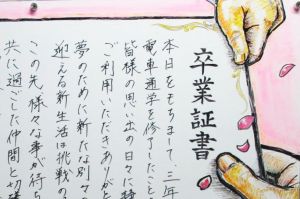 卒業証書
本日をもちまして、三年
電車通学を修了したこと
皆様の思い出の日々に
ご利用いただきありが
夢のために新たな別々
迎える新生活は挑戦の
この先、様々な事が待ち
共に過ごした仲間と切